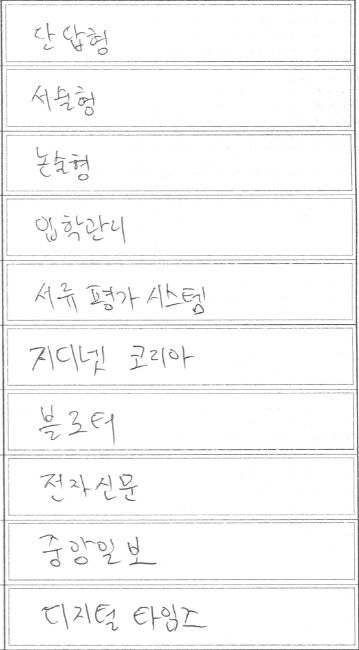 단답형
서술형
논술형
입학관리
서류 평가 시스템
지디넷 코리아
블로터
전자신문
중앙일보
디지털 타임즈